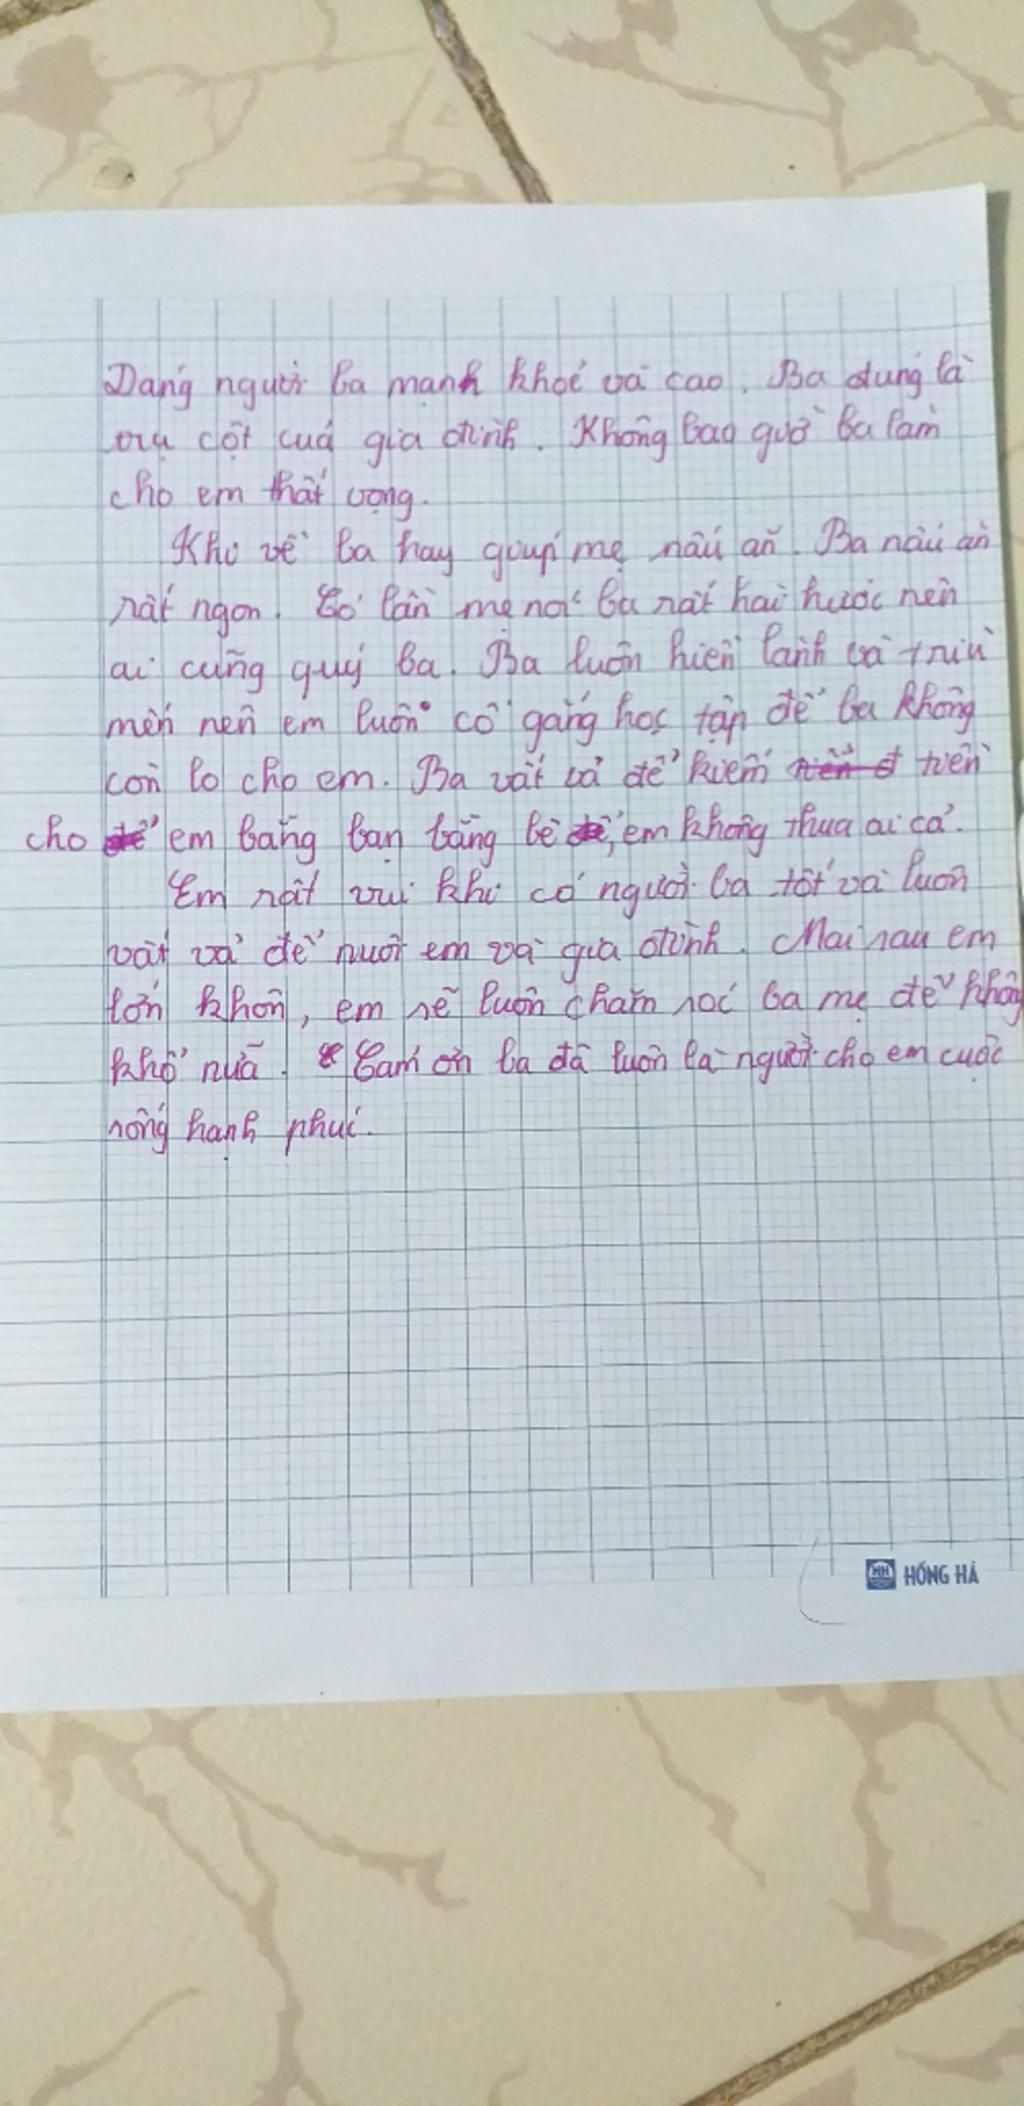 Dáng người ba mạnh khoẻ và cao. Ba đúng là
trụ cột của gia đình. Không bao giờ ba làm
cho em thất vọng.
Khi về ba hay giúp mẹ nấu ăn. Ba nấu ăn
rất ngon. Có lần mẹ nói ba rất hài hước nên
ai cũng quý ba. Ba luôn hiền lành và trìu
mến nên em luôn cố gắng học tập để ba không
còn lo cho em. Ba vất vả để kiếm tiền
cho em bằng bạn bằng bè, em không thua ai cả.
Em rất vui khi có người ba tốt và luôn
vất vả để nuôi em và gia đình. Mai sau em
lớn khôn, em sẽ luôn chăm sóc ba mẹ để không
khổ nữa. Cảm ơn ba đã luôn là người cho em cuộc
sống hạnh phúc.
HỒNG HÀ